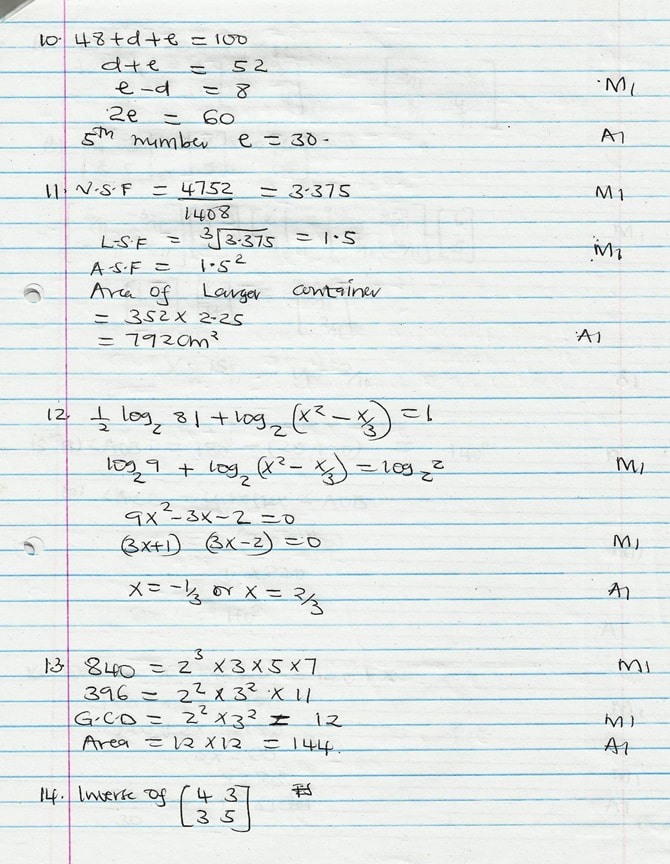 10. 48+d+e = 100
d+e = 52
e-d = 8 M1
2e = 60
5th number e = 30. A1
11. V.S.F = 4752/1408 = 3.375 M1
L.S.F = ∛3.375 = 1.5 M1
A.S.F = 1.5²
Area of Larger container
= 352 x 2.25
= 792cm² A1
12. ½ log₂ 81 + log₂ (x² - x/3) = 1
log₂9 + log₂ (x² - x/3) = log₂2 M1
9x²-3x-2 = 0
(3x+1) (3x-2) = 0 M1
x = -1/3 or x = 2/3 A1
13. 840 = 2³ x 3 x 5 x 7 M1
396 = 2² x 3² x 11
G.C.D = 2² x 3² = 12 M1
Area = 12 x 12 = 144. A1
14. Inverse of [4 3
3 5]